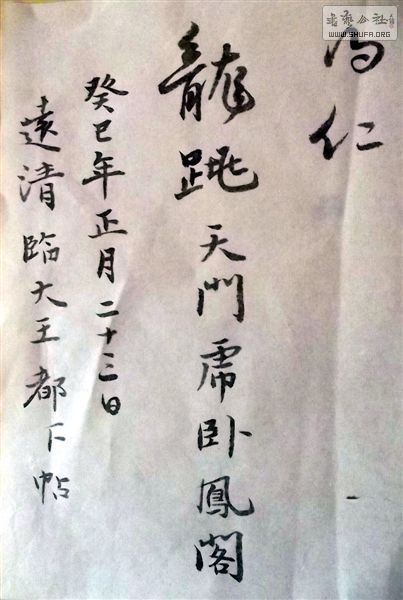 書藝公社
WWW.SHUFA.ORG
仁
龍跳天門虎卧鳳閣
癸巳年正月二十三日
遠清臨大王都下帖